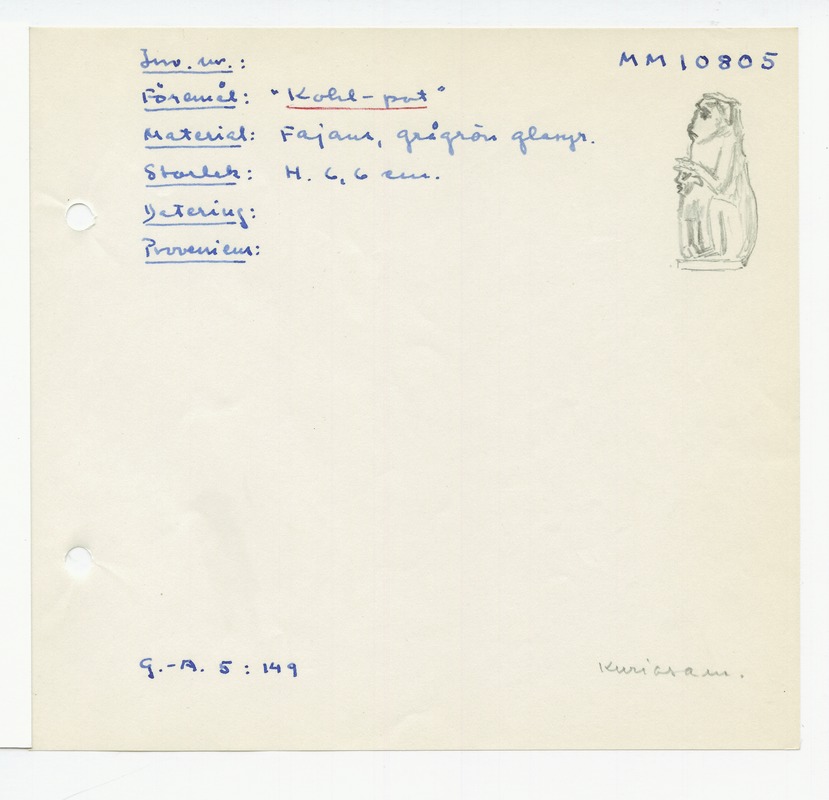 Inv. nr.: MM 10805
Föremål: "Kohl-pot"
Material: Fajans, grågrön glasyr.
Storlek: H. 6,6 cm.
Datering:
Proveniens:
G.-A. 5: 149
Kuriosam.